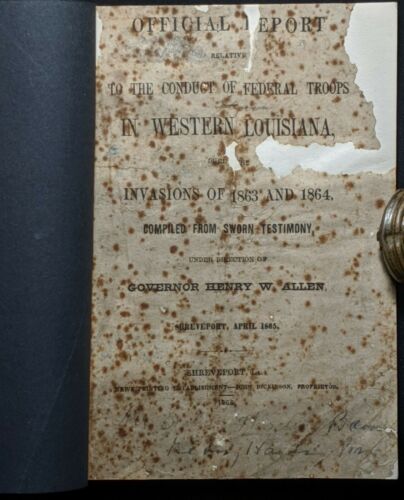 OFFICIAL REPORT
RELATIVE
TO THE CONDUCT OF FEDERAL TROOPS
IN WESTERN LOUISIANA,
INVASIONS OF 1863 AND 1864,
COMPILED FROM SWORN TESTIMONY,
UNDER DIRECTION OF
GOVERNOR HENRY W. ALLEN,
SHREVEPORT, APRIL 1865.
SHREVEPORT, LA.:
NEWS PRINTING ESTABLISHMENT—JOHN DICKINSON, PROPRIETOR.
1865.